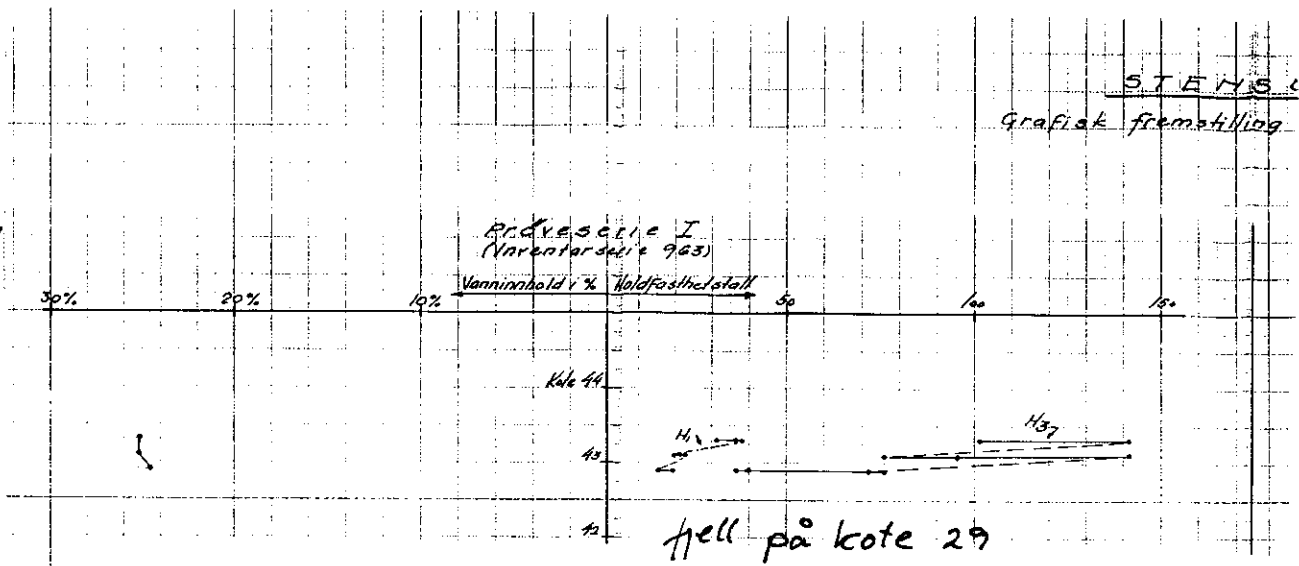 STENS
Grafisk fremstilling
Prøveserie I
(Inventarserie 963)
Vanninnhold i % Holdfasthetstall
30% 20% 10% 50 100 150
Kote 44
H1
H3
43
42
fjell på kote 29